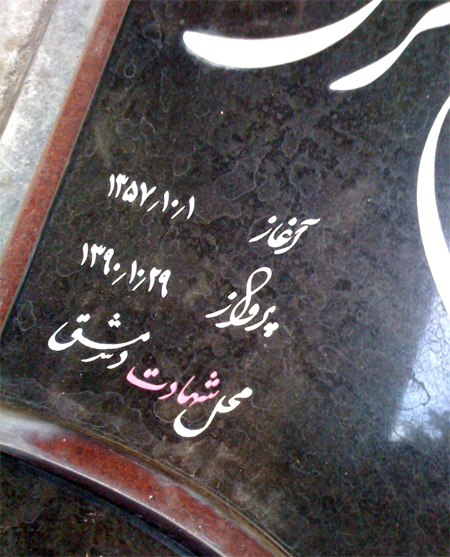 آغاز ۱۳۵۷٫۱۰٫۱
پرواز ۱۳۹۰٫۱۰٫۲۹
محل شهادت دمشق